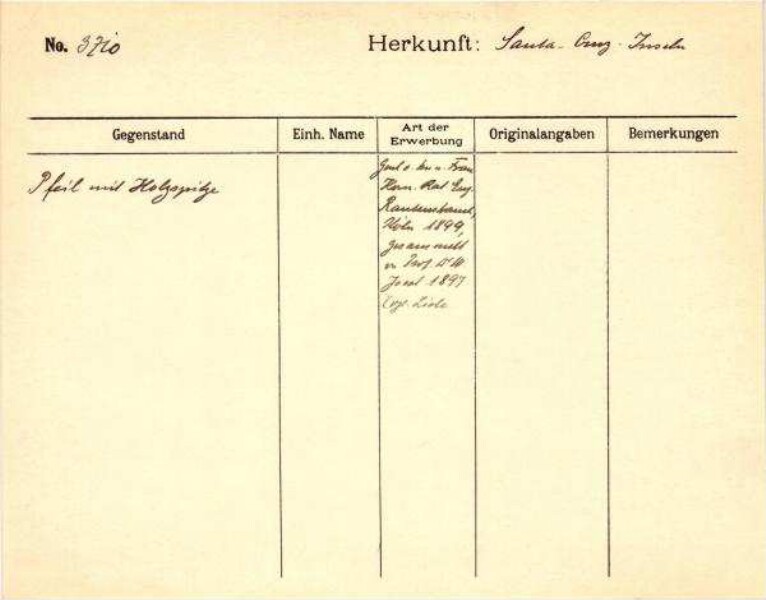 No. 3710
Herkunft: Santa-Cruz-Inseln
Gegenstand
Einh. Name
Art der
Erwerbung
Originalangaben
Bemerkungen
Pfeil mit Holzspitze
u. Frau
Rat Eug.
Rautenstrauch,
Köln 1899,
gesammelt
v. Prof. Dr W
Joest 1897